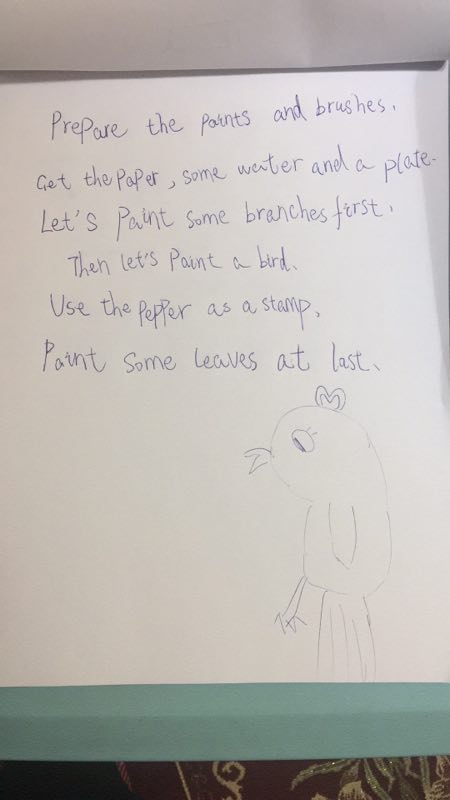 Prepare the paints and brushes.
Get the paper, some water and a plate.
Let's Paint some branches first.
Then let's Paint a bird.
Use the pepper as a stamp.
Paint some leaves at last.